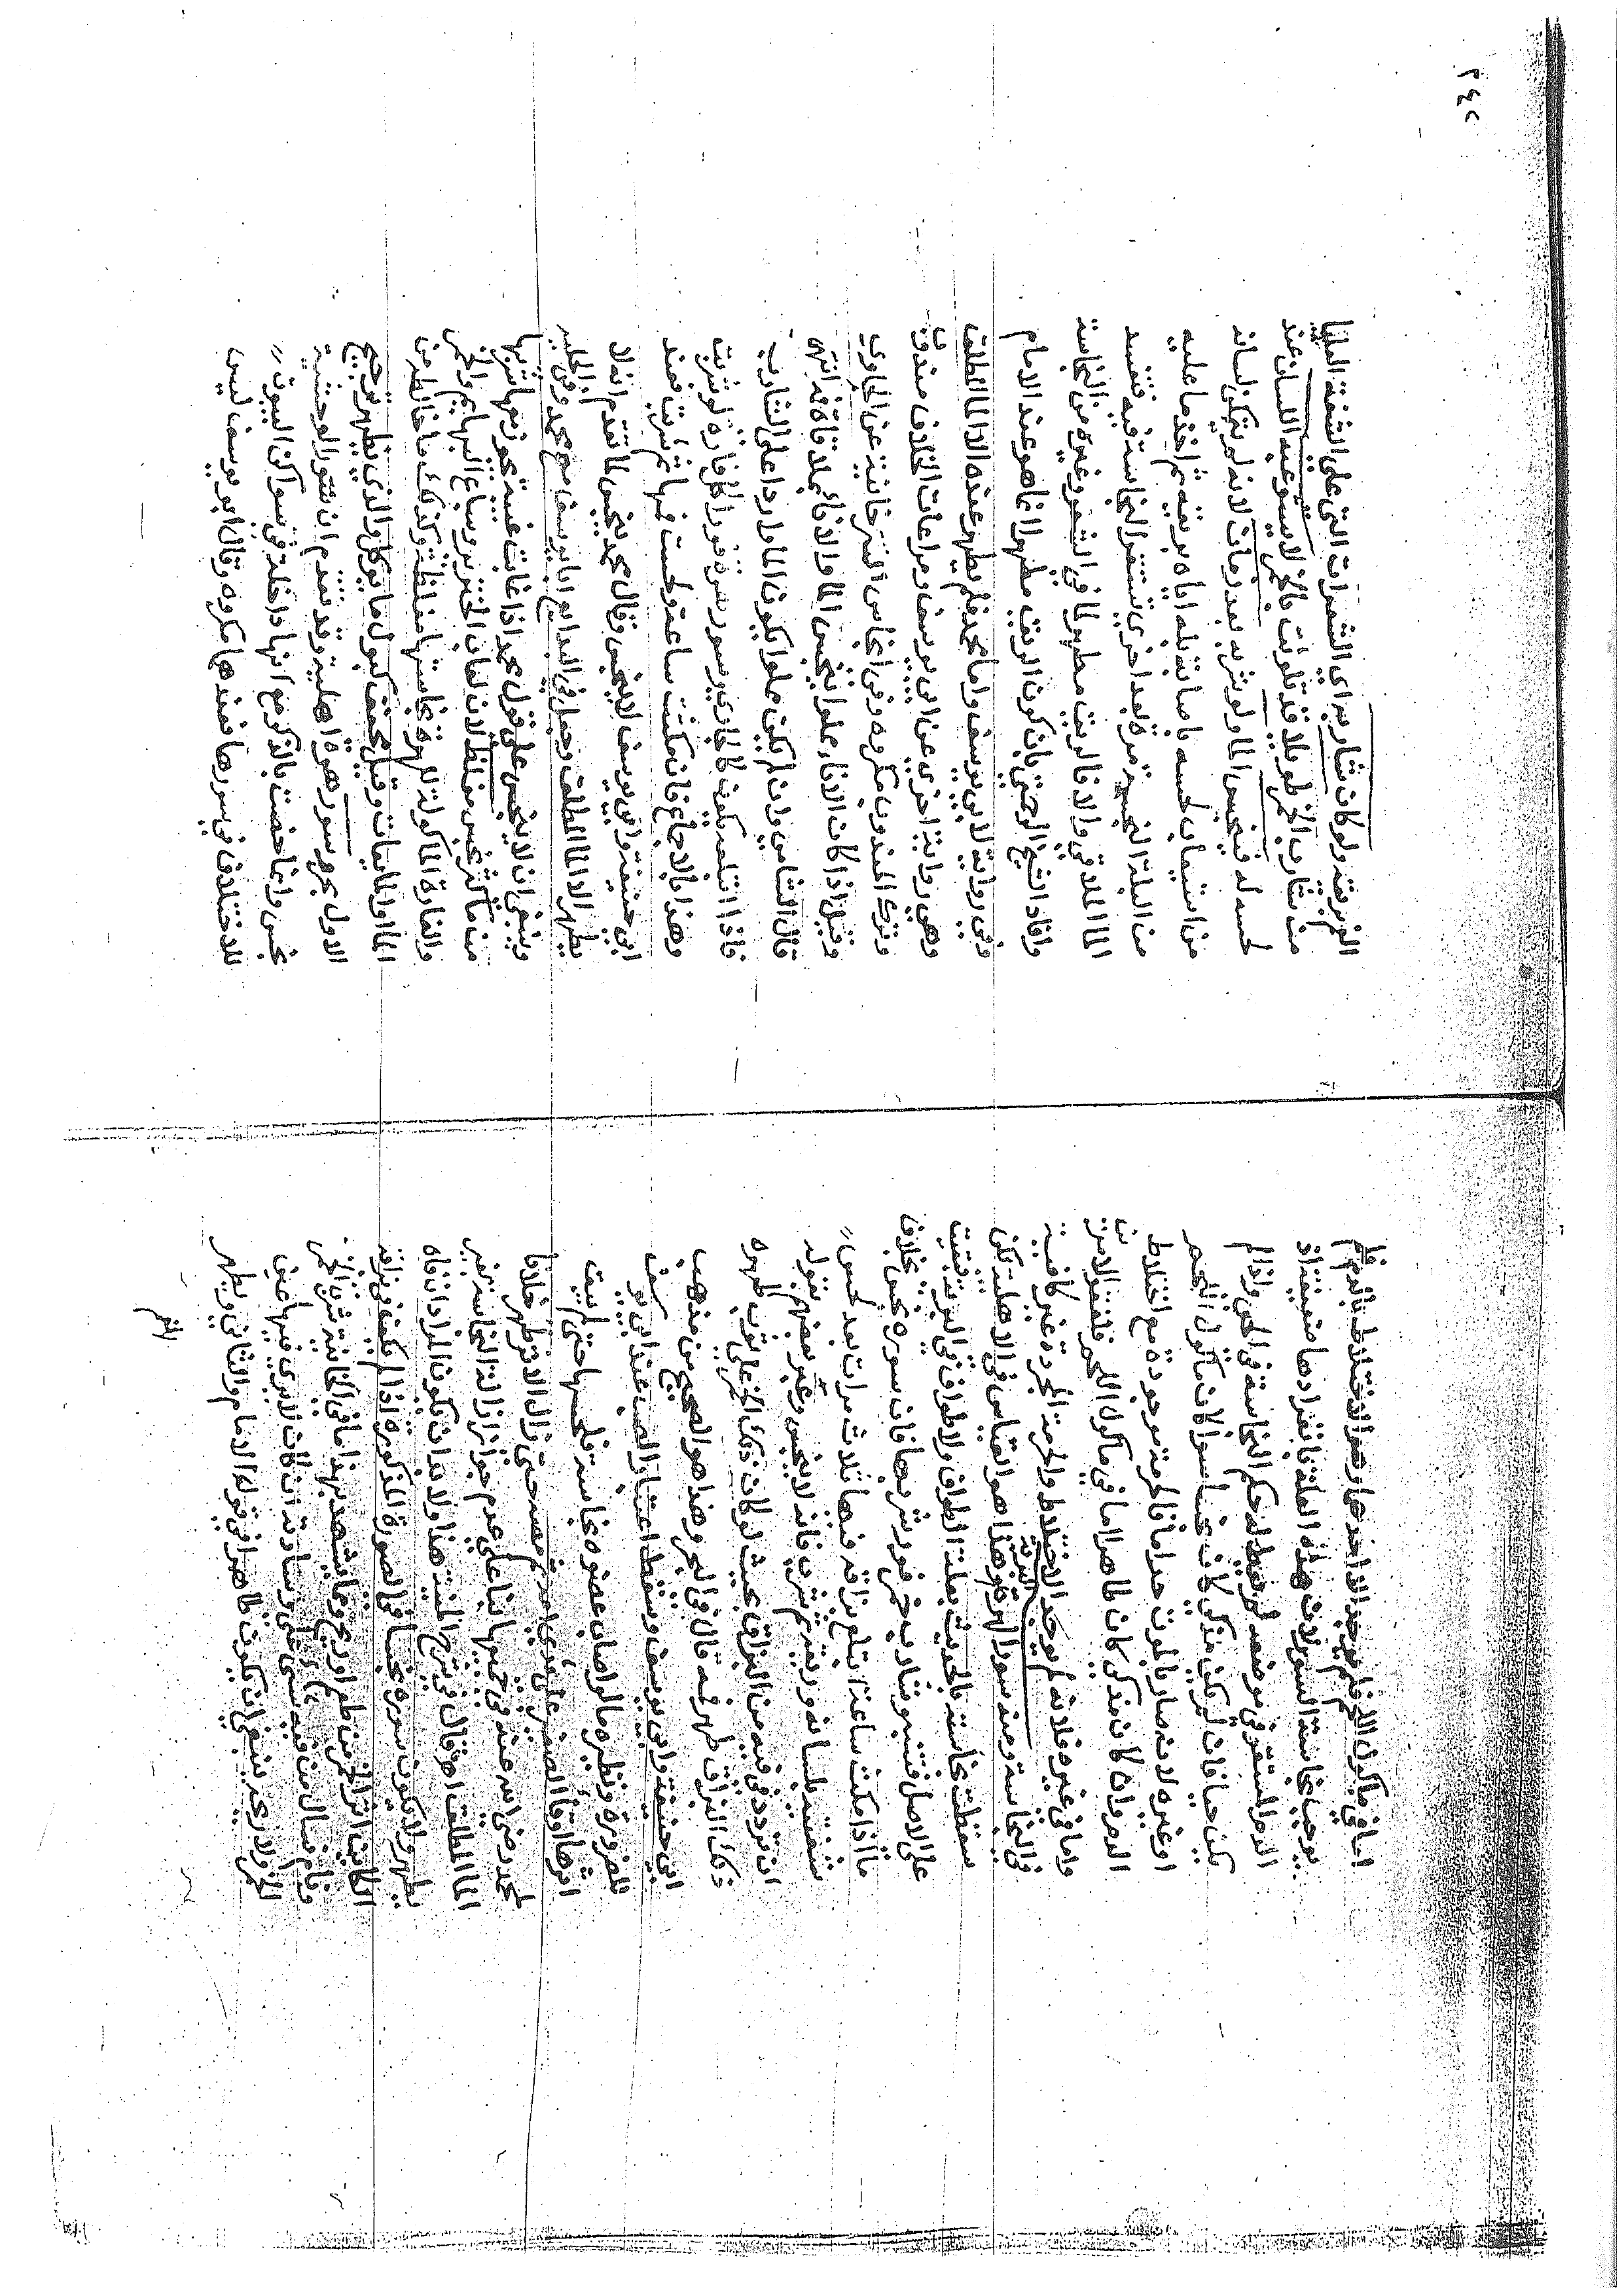 اما في ماكول اللحم فلم يوجد الا احدهما وهو الاختلاط بالدم فلم
يوجب نجاسة السور لان هذه العلة بانفرادها ضعيفة اذ
الدم المستقر في موضعه لم يعط له حكم النجاسة في الحي واذا لم
يكن حيا فان لم يكن مذكى كان نجسا سوا كان ماكول اللحم
او غيره لانه صار بالموت حراما فالحرمة موجودة مع اختلاط
الدم وان كان مذكى كان طاهرا اما في ماكول اللحم فلفقد الامرين
واما في غيره فلانه لم يوجد الاختلاط والحرمة المجردة غير كافية
في النجاسة ومنه سور الهرة البرية وهذا هو القياس في الاهلية لكن
سقطت نجاسته بالحديث بعلة الطواف ولا طواف في البرية فبقيت
على الاصل فتنبه وشارب خمر فور شربها فان سوره نجس بخلاف
ما اذا مكث ساعة ابتلع بزاقه فيها ثلاث مرات بعد لحس
شفتيه بلسانه وريقه ثم شرب فانه لا ينجس وعبر بعضهم بقوله
ان تردد في فيه من البزاق بحيث لو كان ذلك الخمر على ثوب طهره
ذلك البزاق طهر فمه قال في البحر وهذا هو الصحيح من مذهب
ابي حنيفة وابي يوسف وسقط اعتبار الصب عند ابي يوسف
للضرورة ونظيره ما لو اصاب عضوه نجاسة فلحسها حتى لم يبق
اثرها او قا الصغير على ثدي امه ثم مصه حتى زال الاثر طهر خلافا
لمحمد رضي الله عنه في جميعها بنا على عدم جواز ازالة النجاسة بغير
الما المطلق اهـ قال في شرح المنية هذا ولا بد ان يكون المراد
يطهر ولا يكون سوره نجسا في الصورة المذكورة اذا لم يكن في بزاقه
اثر الخمر من طعم او ريح
الخمر ولا بحر ينبغي ان يكون طاهرا في قول الامام والثاني ويطهر
الخمر
٢٤٢
ولو كان شاربه اي الشعرات التي على الشفة العليا
من شارب الخمر طويلا قد تلوث بالخمر لا يستوعبه اللسان عند
لحسه له فينجس الما ولو شربه بعد زمان لانه لو تمكن لسانه
من استيعاب لحسه باصابة بله اياه بريقه ثم اخذ ما عليه
من البلة النجسة مرة بعد اخرى تستقر النجاسة فيه فتفسد
الما الملاقي والا فالريق مطهر لما في الشعر وغيره من النجاسة
وافاد الشيخ الرحمتي بان كون الريق مطهرا انما هو عند الامام
وفي رواية لابي يوسف واما محمد فلم يطهر عنده الا الما المطلق
وهي رواية اخرى عن ابي يوسف ومراعات الخلاف مندوبة
وترك المندوب مكروه وفي انجاس التترخانية عن الحاوي
وقيل اذا كان الانا مملوا ينجس الما والانا بملاقاة فمه انتهى
قال الشامي وان لم يكن مملوا يكون الما واردا على الشارب
فاذا ابتلعه يكون كالجاري وسور هرة فور اكل فارة لو شربت
وهذا بالاجماع فان مكثت ساعة ولحست فمها ثم شربت فعند
ابي حنيفة وابي يوسف لا ينجس وقال محمد ينجس لما تقدم انه لا
يطهر الا الما المطلق وجعل في البدايع ابا يوسف مع محمد وفي الحلية
وينبغي ان لا ينجس على قول محمد اذا غابت غيبة يجوز معها شربها
من ما كثير نجس مغلظ لان لعاب الخنزير وسباع البهايم والخمر
والفارة الماكولة للهرة نجاستها مغلظة وكذلك ما خالطه من
الما او المايعات وقيل مخفف كبول ما يوكل والذي يظهر ترجيح
الاول بحر وسور هرة اهلية وقد تقدم ان سور الوحشية
نجس وانما خصت بالذكر مع انها داخلة في سواكن البيوت
للاختلاف في سورها فعندهما مكروه وقال ابو يوسف ليس